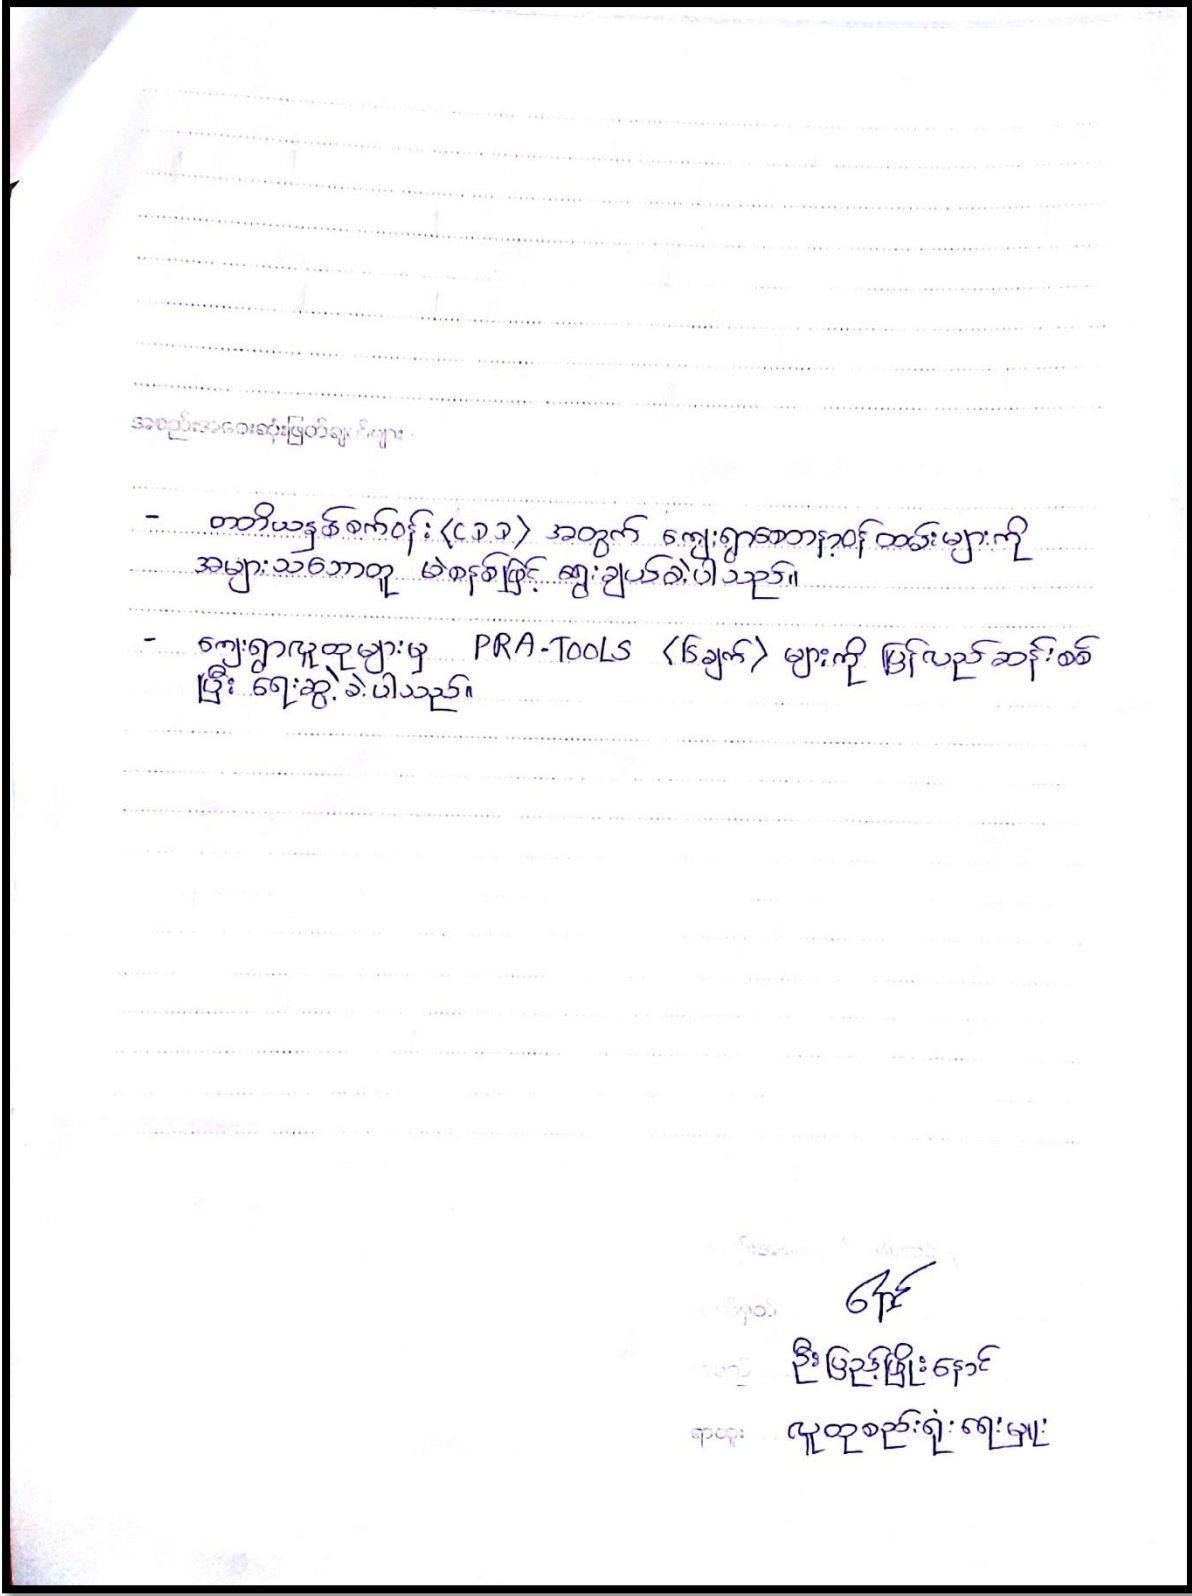 အစည်းအဝေးဆုံးဖြတ်ချက်များ
- တတိယနှစ်စက်ဝန်း (၎၁၁) အတွက် ကျေးရွာစေတနာ့ဝန်ထမ်းများကို
အများသဘောတူ မဲစနစ်ဖြင့် ရွေးချယ်ခဲ့ပါသည်။
- ကျေးရွာလူထုများမှ PRA-TOOLS (၆ချက်) များကို ပြန်လည်ဆန်းစစ်
ပြီး ရေးဆွဲခဲ့ပါသည်။
ဦးပြည့်ဖြိုးနောင်
ရာထူး လူထုစည်းရုံးရေးမှူး